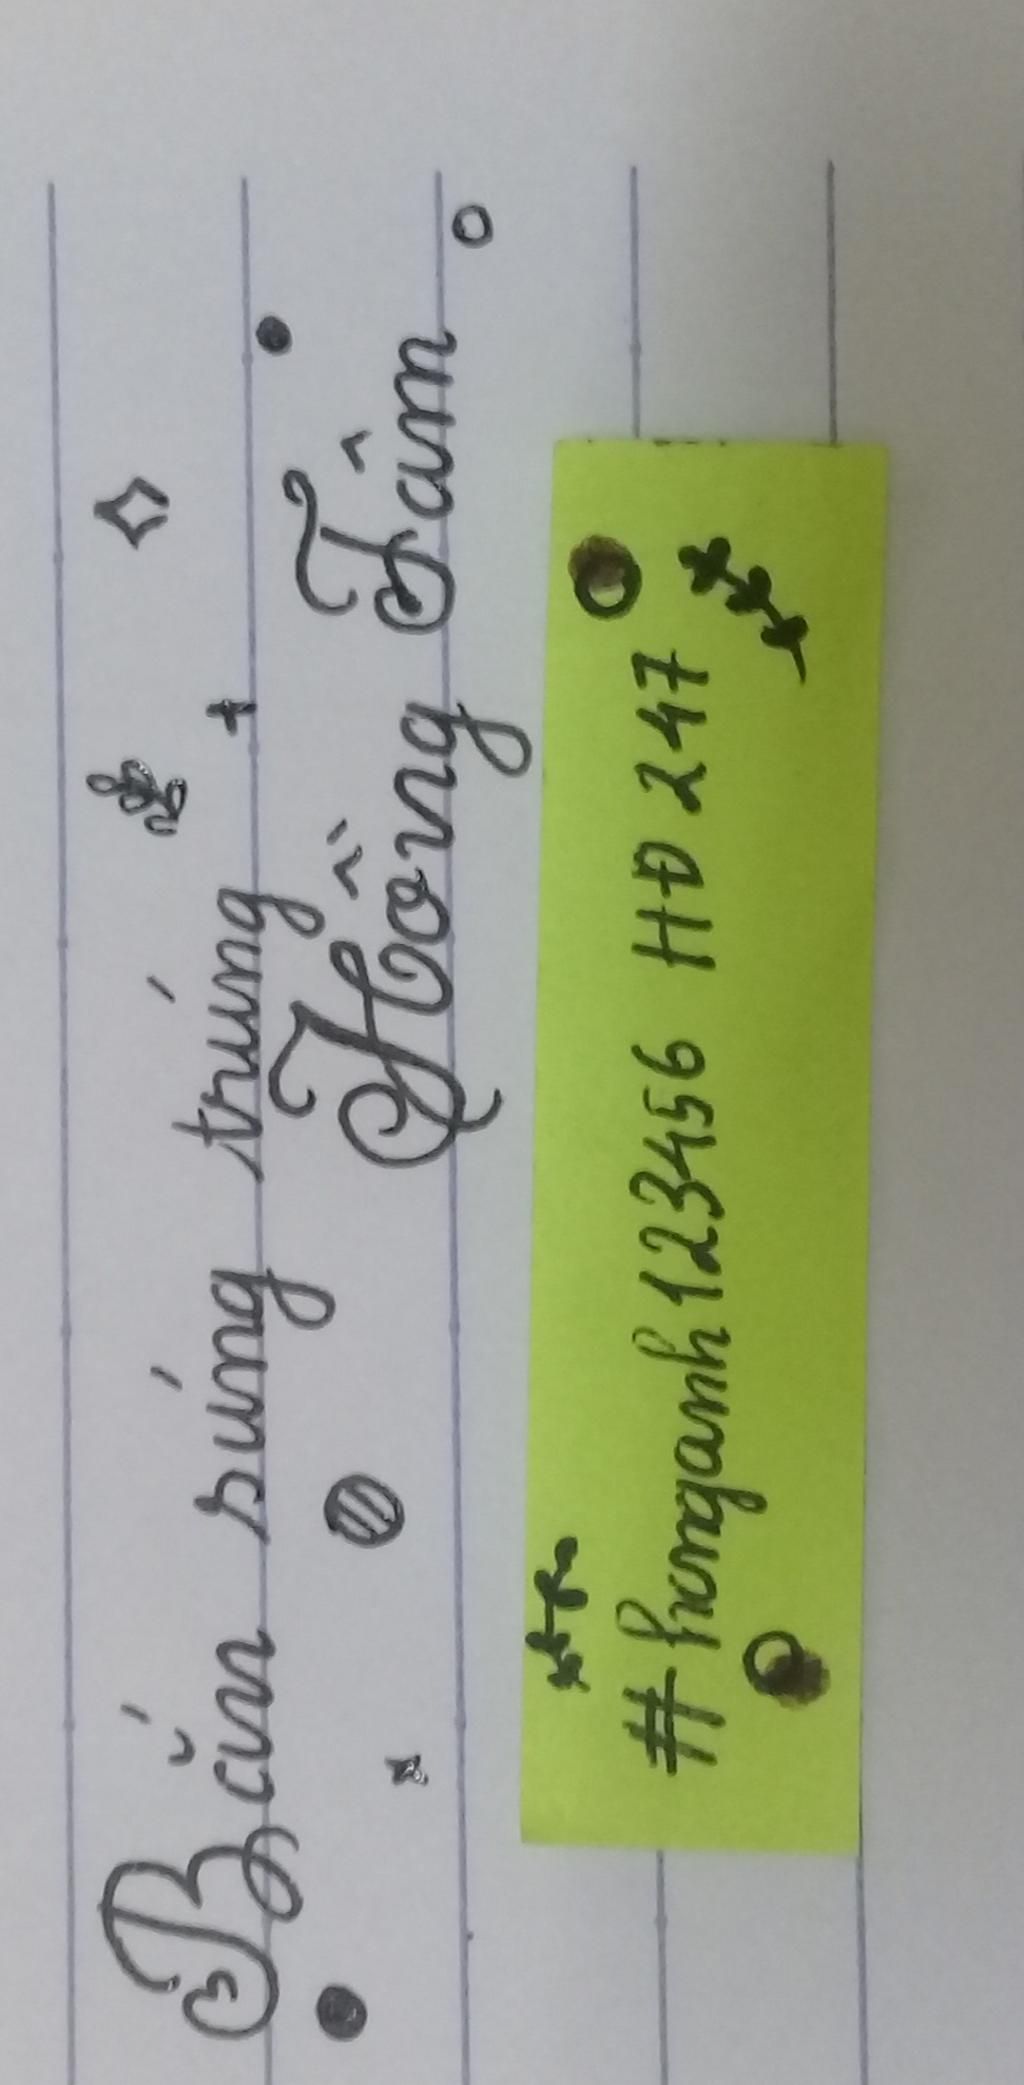 Bắn súng trúng
Hồng Tâm
#honganh123456 HĐ 247